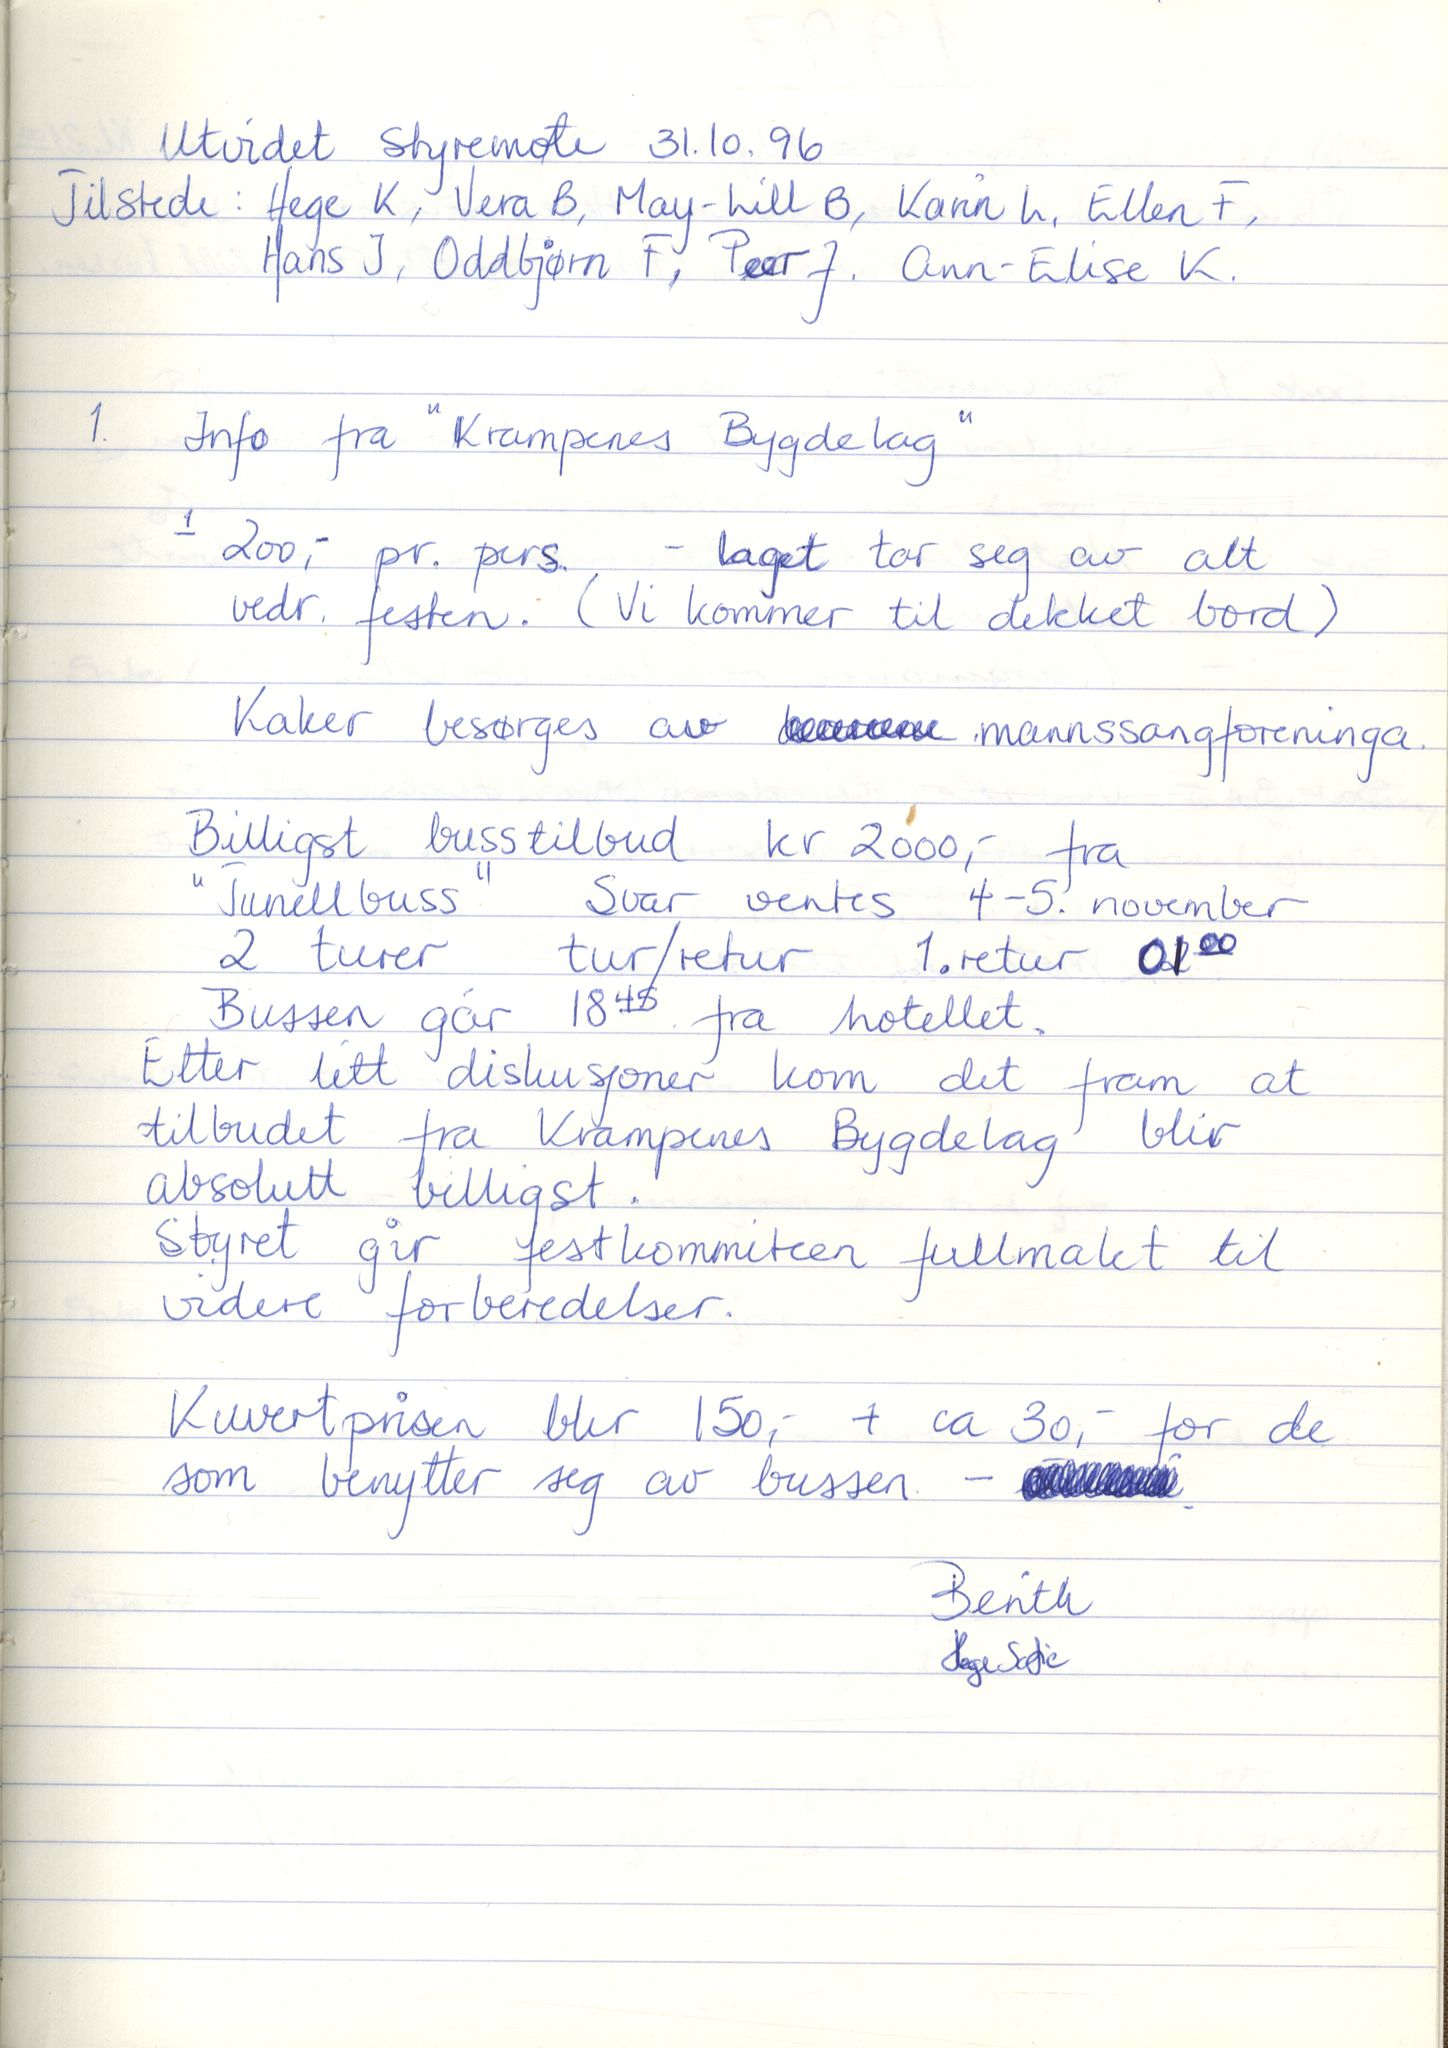 Utvidet styremøte 31.10.96
Tilstede: Hege K, Vera B, May-Lill B, Karin L, Ellen F,
Hans J, Oddbjørn F, Peer J. Ann-Elise K.
1. Info fra "Krampenes Bygdelag"
1 200,- pr. pers. - laget tar seg av alt
vedr. festen. (Vi kommer til dekket bord)
Kaker besørges av mannssangforeninga.
Billigst busstilbud kr 2000,- fra
"Tunellbuss" Svar ventes 4-5. november
2 turer tur/retur 1. retur 01⁰⁰
Bussen går 18⁴⁵ fra hotellet.
Etter litt diskusjoner kom det fram at
tilbudet fra Krampenes Bygdelag blir
absolutt billigst.
Styret gir festkommiteen fullmakt til
videre forberedelser.
Kuvertprisen blir 150,- + ca 30,- for de
som benytter seg av bussen -
Berith
Hege Sofie